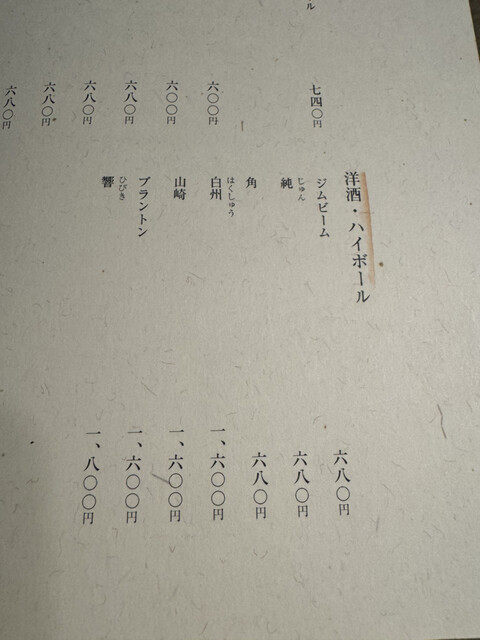 ル
七四〇円
六〇〇円
六〇〇円
六八〇円
六八〇円
六八〇円
六八〇円
洋酒・ハイボール
ジムビーム 六八〇円
じゅん
純 六八〇円
角 六八〇円
はくしゅう
白州 一、六〇〇円
山崎 一、六〇〇円
ブラントン 一、六〇〇円
ひびき
響 一、八〇〇円